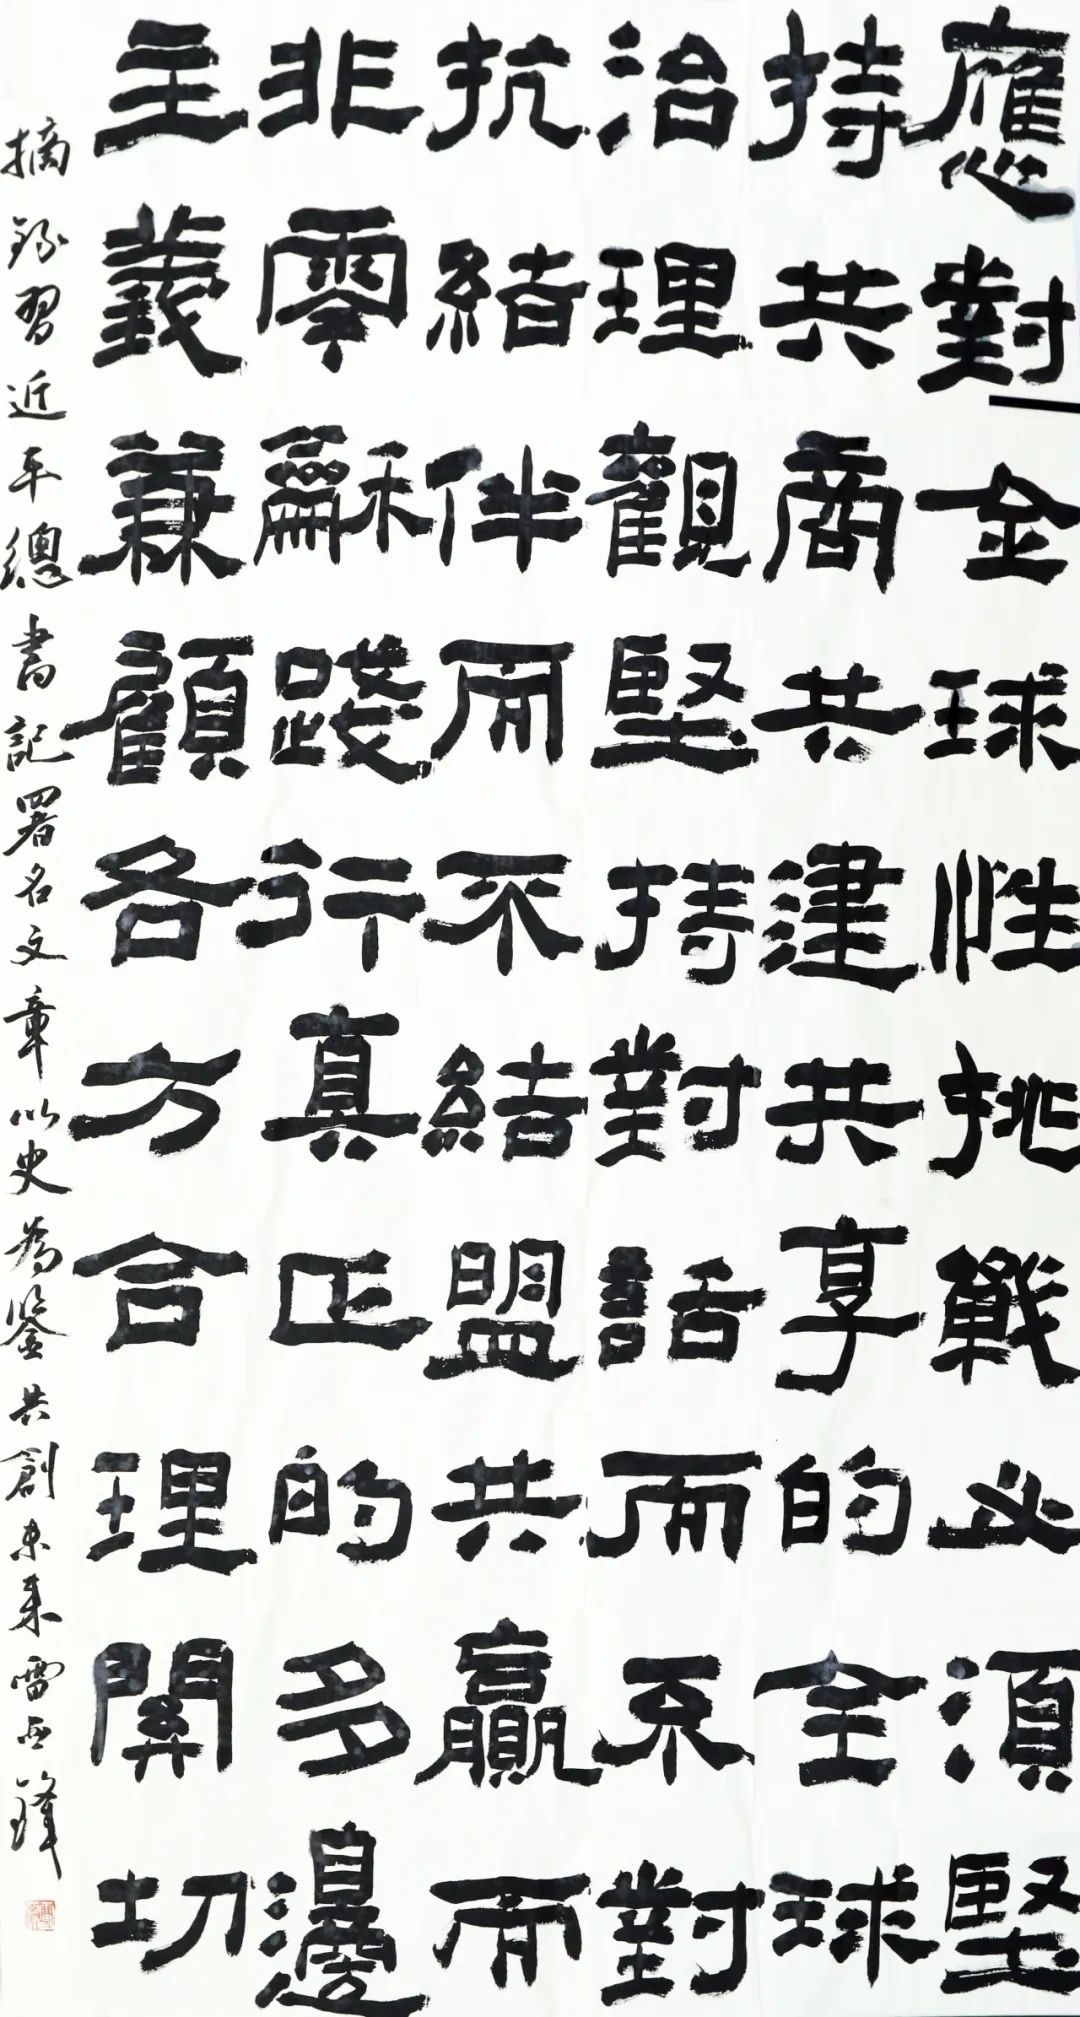 應對全球性挑戰必須堅
持共商共建共享的全球
治理觀堅持對話而不對
抗緒伴而不結盟共贏而
非零龢踐行真正的多邊
主義兼顧各方合理關切
摘錄習近平總書記署名文章以史為鑒共創未來雷亞鋒